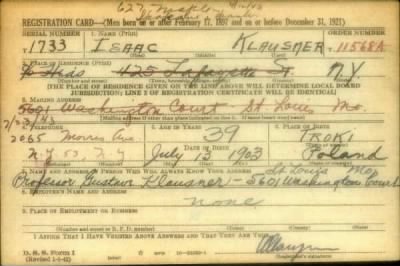 REGISTRATION CARD—(Men born on or after February 17, 1897 and on or before December 31, 1921)
SERIAL NUMBER 1. NAME (Print) ORDER NUMBER
1733 ISAAC KLAUSNER 11568A
(First) (Middle) (Last)
2. PLACE OF RESIDENCE (Print)
Hias 425 Lafayette St N.Y.
(Number and street) (Town, township, village, or city) (County) (State)
[THE PLACE OF RESIDENCE GIVEN ON THE LINE ABOVE WILL DETERMINE LOCAL BOARD
JURISDICTION; LINE 2 OF REGISTRATION CERTIFICATE WILL BE IDENTICAL]
3. MAILING ADDRESS
5601 Washington Court St. Louis Mo.
[Mailing address if other than place indicated on line 2. If same insert word same]
4. TELEPHONE 5. AGE IN YEARS 6. PLACE OF BIRTH
2065 Morris Ave. 39 TROKI
DATE OF BIRTH
N.Y. 53, N.Y. July 13 1903 Poland
7. NAME AND ADDRESS OF PERSON WHO WILL ALWAYS KNOW YOUR ADDRESS
St Louis Mo
Professor Gustav Klausner - 5601 Washington Court
8. EMPLOYER'S NAME AND ADDRESS
none
9. PLACE OF EMPLOYMENT OR BUSINESS
(Number and street or R. F. D. number) (Town) (County) (State)
I AFFIRM THAT I HAVE VERIFIED ABOVE ANSWERS AND THAT THEY ARE TRUE.
D. S. S. Form 1
(Revised 1-1-42)